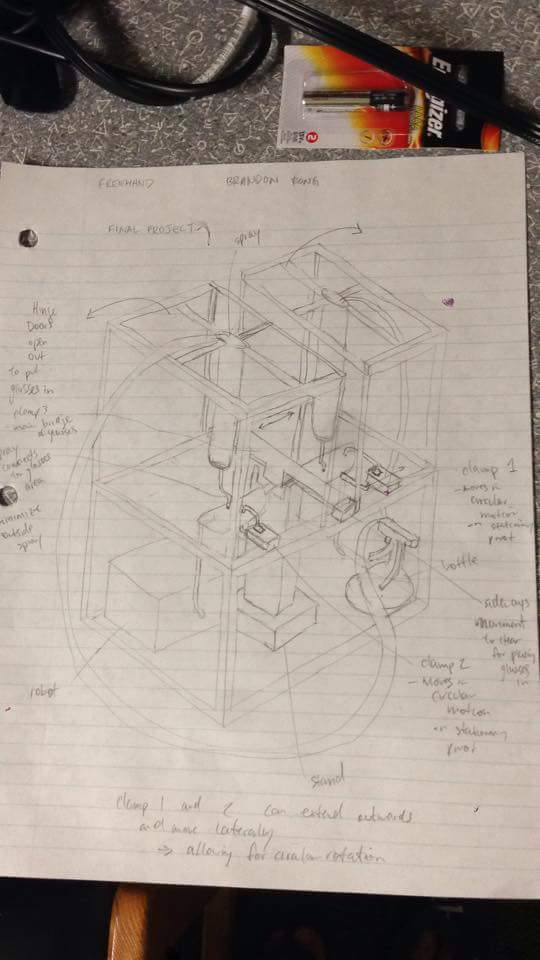 Energizer
2
FREEHAND BRANDON KONG
FINAL PROJECT
spray
Hinge
Doors
open
out
to put
glasses in
clamp 3
- main bridge
of glasses
spray
connects
in glasses
area
minimize
outside
spray
clamp 1
- moves in
circular
motion
on stationary
pivot
bottle
sideways
movement
to clear
for putting
glasses
in
clamp 2
- moves in
circular
motion
on stationary
pivot
robot
stand
clamp 1 and 2 can extend outwards
and move laterally
→ allowing for circular rotation